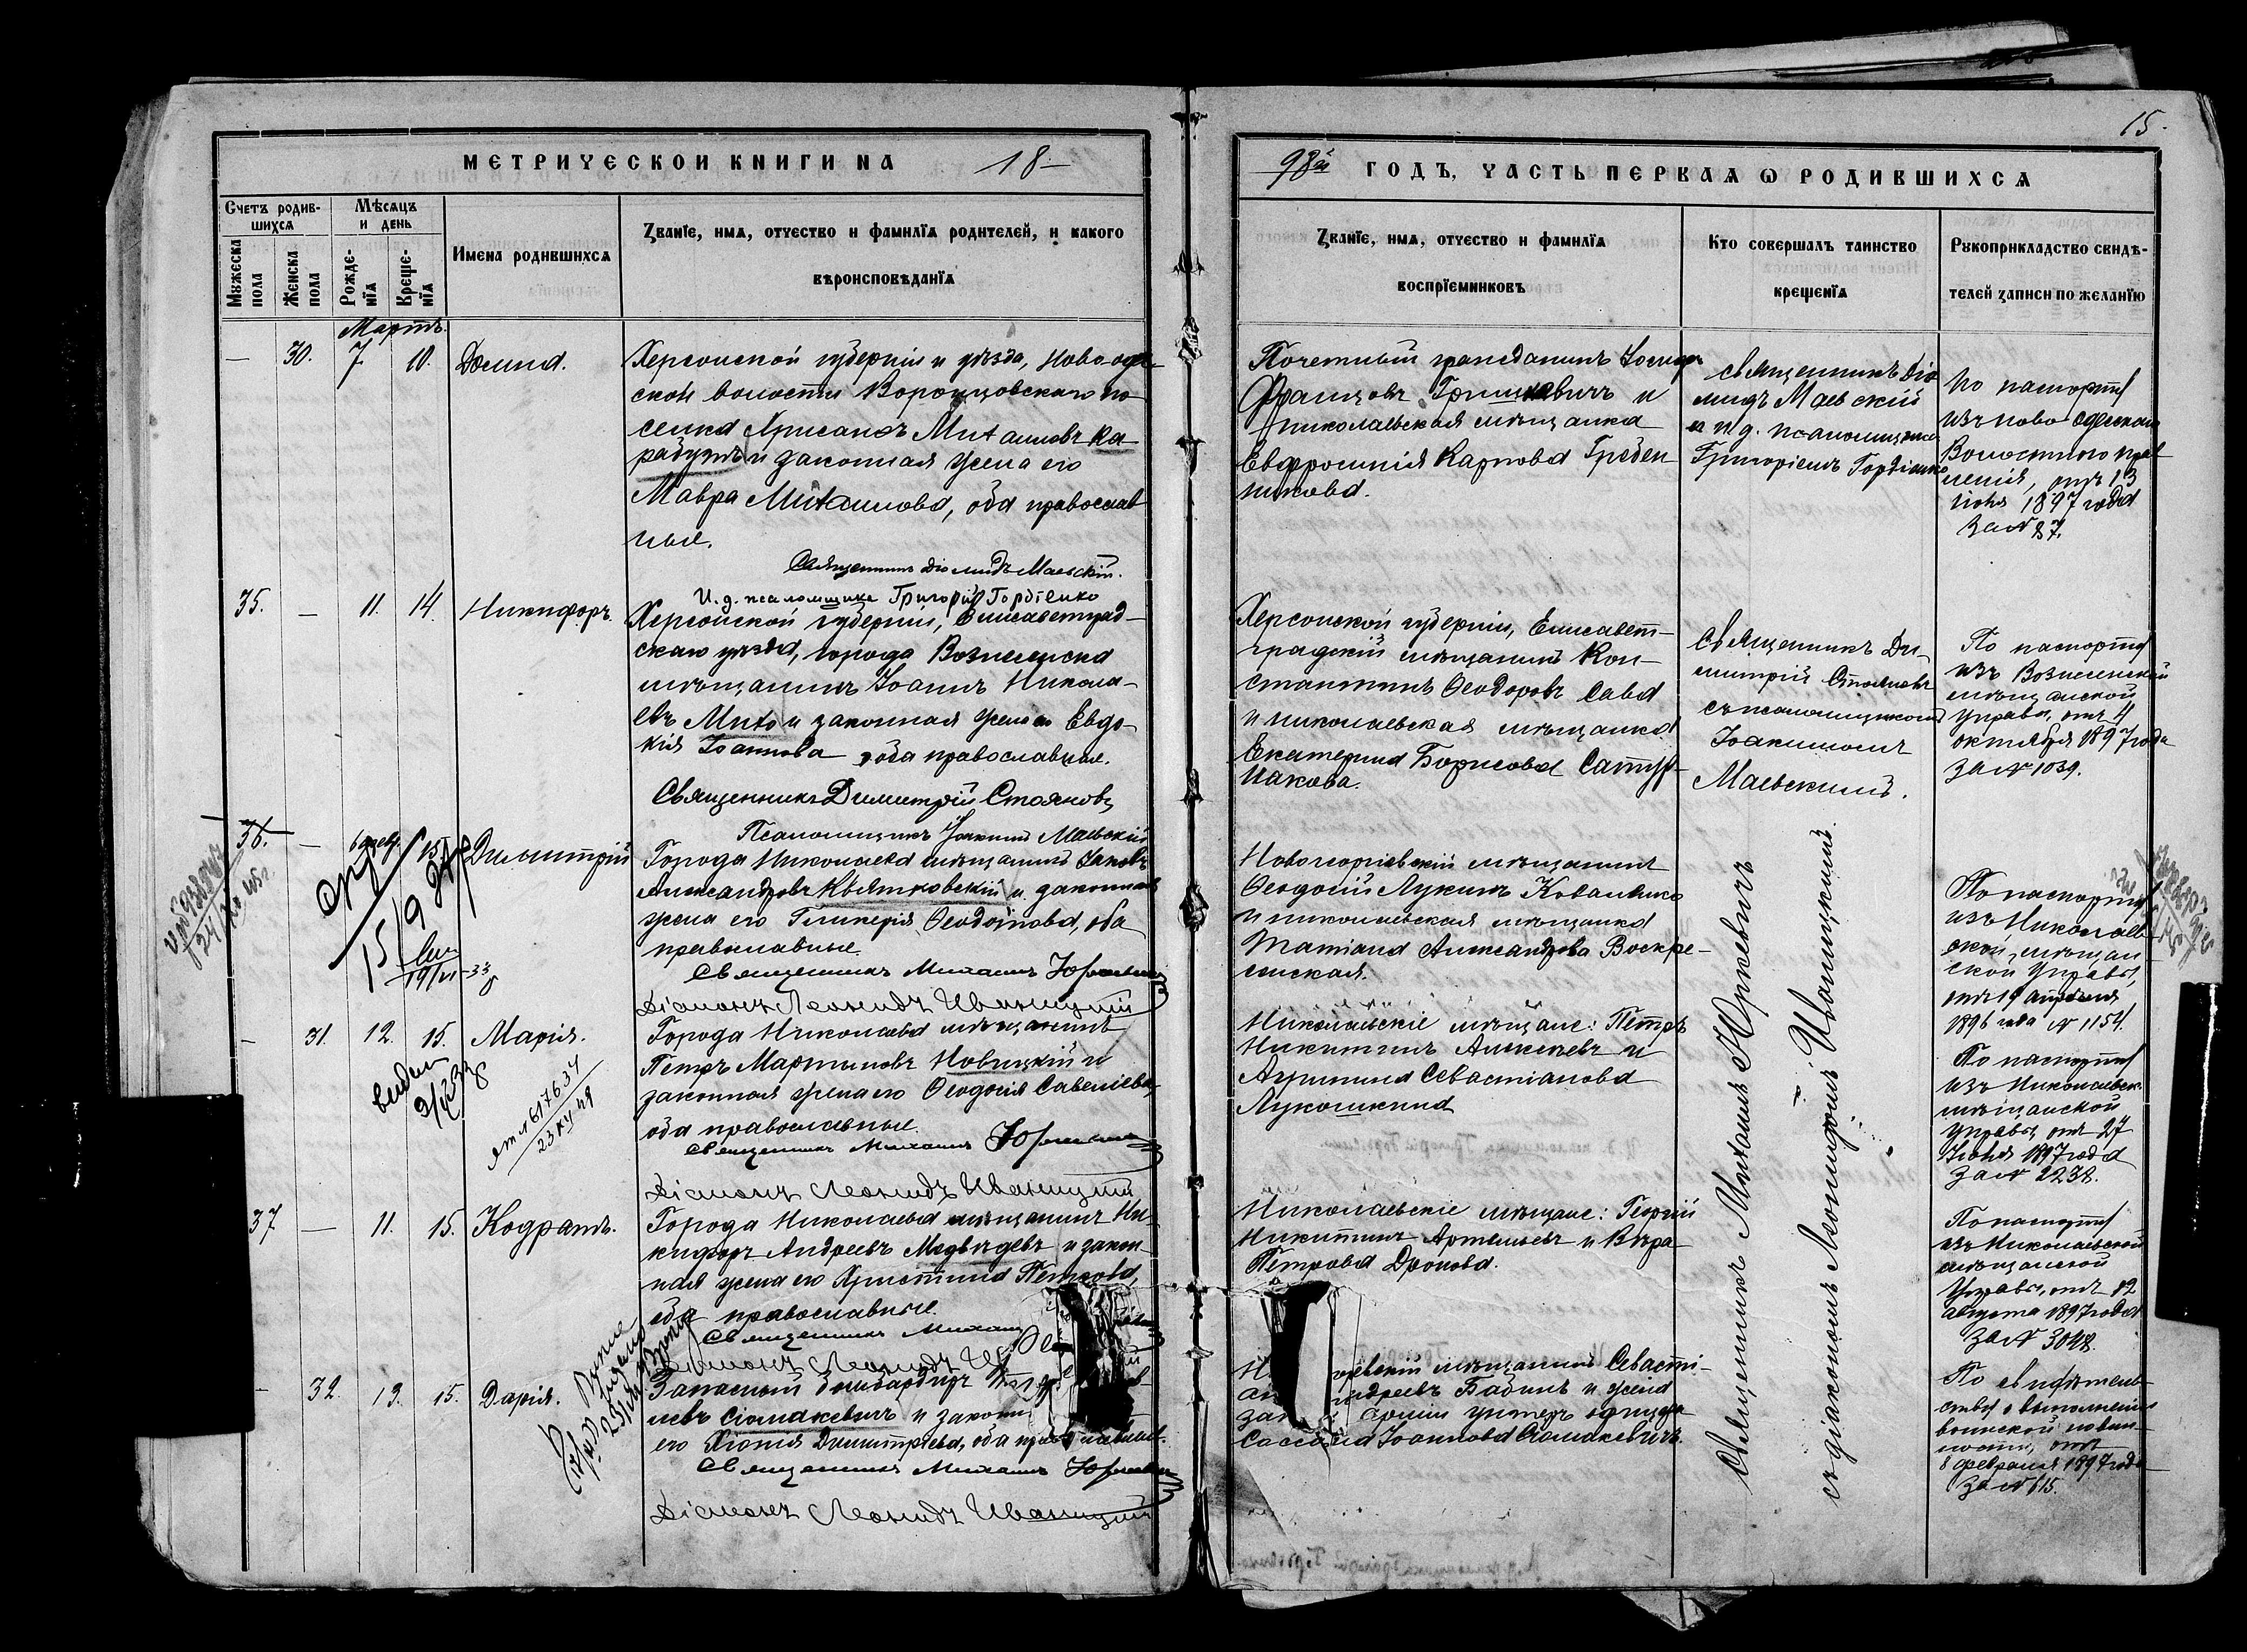 15.
МЕТРИЧЕСКОЙ КНИГИ НА 18–
98й ГОДЪ, ЧАСТЬ ПЕРВАЯ О РОДИВШИХСЯ
Счетъ родив-
шихся
Мужеска
пола
Женска
пола
Мѣсяцъ
и день
Рожде-
нїя
Креще-
нїя
Имена родившихся
Званїе, имя, отчество и фамилїя родителей, и какого
вѣроисповѣданїя
Званїе, имя, отчество и фамилїя
воспрїемниковъ
Кто совершалъ таинство
крещенїя
Рукоприкладство свидѣ-
телей записи по желанїю
Мартъ
— 30. 7 10. Домна.
Херсонской губерніи и уѣзда, Ново-оде-
ской волости Воронцовскаго по
селка Хрисанѳъ Михаиловъ Ка-
и законная жена его
Мавра Михаилова, оба православ
ные.
Священникъ Діомидъ Маевскій.
И. д. псаломщика Григорій Гордіенко
Почетный гражданинъ
Францовъ и
николаевская мѣщанка
Евфросинія Карпова Гребен
никова.
Священникъ Діо
мидъ Маевскій
и и. д. псаломщика
Григоріемъ Гордіенко
По паспорту
изъ ново-одесскаго
Волостного прав
ленія, отъ 13
1897 года
за № 87.
35. — 11. 14. Никифоръ.
Херсонской губерніи, Елисаветград-
скаго уѣзда, города Вознесенска
мѣщанинъ Іоаннъ Никола-
евъ Михо и законная жена его Евдо-
кія Іоаннова оба православные.
Священникъ Димитрій Стояновъ
Псаломщикъ Іоакимъ Маевскій
Херсонской губерніи, Елисавет-
градскій мѣщанинъ Кон-
стантинъ Ѳеодоровъ Сава
и николаевская мѣщанка
Екатерина Борисова
Священникъ Ди-
митрій Стояновъ
съ псаломщикомъ
Іоакимомъ
Маевскимъ.
По паспорту
изъ Вознесенской
мѣщанской
управы, отъ 4
октября 1897 года
за № 1039.
36. — 15. Димитрій
Города Николаева мѣщанинъ Іаковъ
Александровъ Квятковскій и законная
жена его Гликерія Ѳеодотова, оба
православные.
Священникъ Михаилъ Юркевичъ
Діаконъ Леонидъ Иваницкій
Новогеоргіевскій мѣщанинъ
Ѳеодосій Лукинъ Коваленко
и николаевская мѣщанка
Татіана Александрова Воскре-
сенская.
По паспорту
изъ Николаев-
ской мѣщан-
ской Управы,
отъ 19 апрѣля
1896 года № 1154.
— 31. 12. 15. Марія.
Города Николаева мѣщанинъ
Петръ Мартиновъ Новицкій и
законная жена его Ѳеодосія Савеліева,
оба православные.
Священникъ Михаилъ Юркевичъ
Діаконъ Леонидъ Иваницкій
Николаевскіе мѣщане: Петръ
Никитинъ Алексѣевъ и
Агрипина Севастіанова
Лукошкина
По паспорту
изъ Николаевск.
мѣщанской
управы, отъ 27
Іюня 1897 года
за № 2232.
37 — 11. 15. Кодратъ.
Города Николаева мѣщанинъ Ни-
кифоръ Андреевъ Медвѣдевъ и закон-
ная жена его Христина Петрова,
оба православные.
Священникъ Михаи
Діаконъ Леонидъ
Николаевскіе мѣщане: Георгій
Никитинъ Артемьевъ и Вѣра
Петрова Дронова.
По паспорту
изъ Николаевской
мѣщанской
Управы, отъ 12
августа 1897 года
за № 3048.
— 32. 13. 15. Дарія.
Запасный бомбардиръ
Сіомакевичъ и законн
его Хіонія Димитріева, оба православные.
Священникъ Михаилъ Юркевичъ
Діаконъ Леонидъ Иваницкій
мѣщанинъ Севасті-
Бабинъ и жена
арміи унтеръ офицера
Іоаннова
По свидѣтель-
ству о выполненіи
воинской повин-
ности, отъ
8 февраля 1897 года
за № 615.
Священникъ Михаилъ Юркевичъ
съ діакономъ Леонидомъ Иваницкимъ.